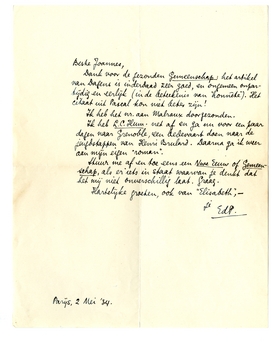 Beste Joannes,
Dank voor de gezonden Gemeenschap: het artikel
van Duferne is inderdaad zeer goed, en ongemeen onpar-
tijdig en eerlijk (in de betekenis van honnête). Het
citaat uit Pascal kon niet beter zijn!
Ik heb het vs. aan Malraux doorgezonden.
Ik heb L.C. Hum. net af en ga nu voor een paar
dagen naar Grenoble, een bedevaart doen naar de
jeugdstappen van Henri Brulard. Daarna ga ik weer
aan mijn eigen "roman".
Stuur me af en toe eens een Nwe Eeuw of Gemeen-
schap, als er iets in staat waarvan je denkt dat
het mij niet onverschillig laat. Graag.
Hartelijke groeten, ook van "Elisabeth",-
je
EdP.
Parijs, 2 Mei '34.